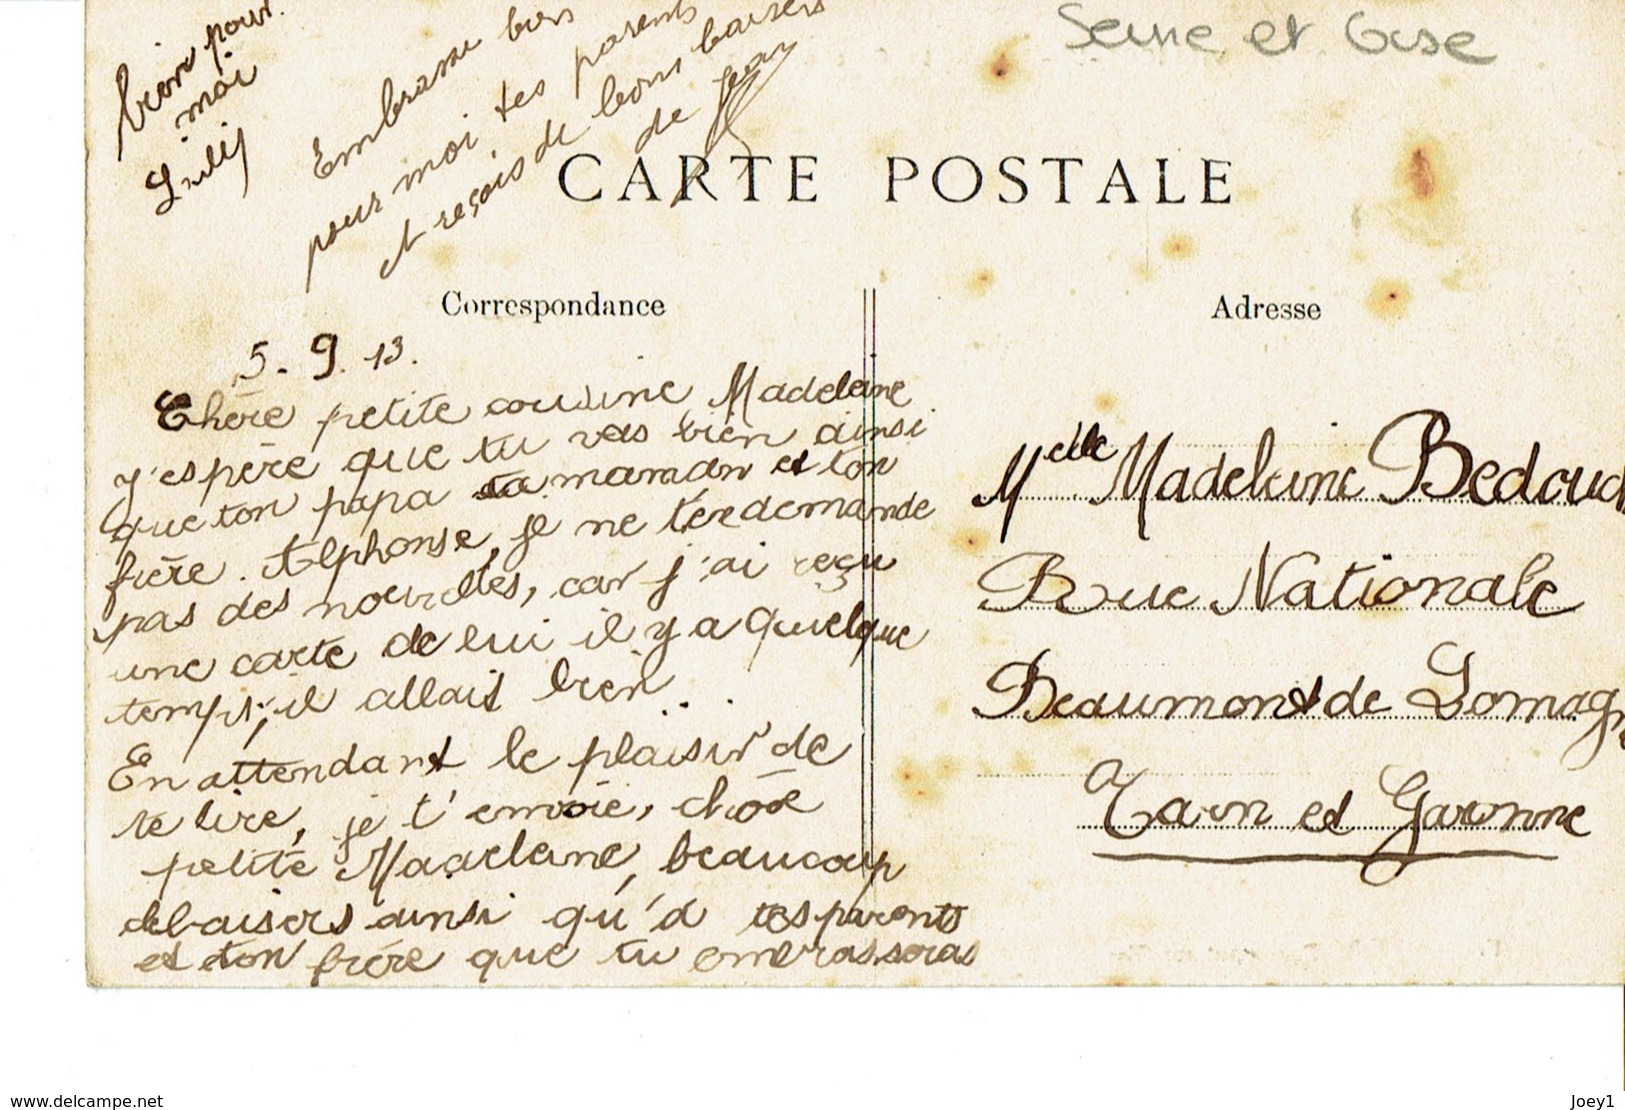 Seine et Oise
CARTE POSTALE
Correspondance
Adresse
5. 9. 13.
Chère petite cousine Madeleine
J'espère que tu vas bien ainsi
que ton papa ta maman et ton
frère. Alphonse, je ne te demande
pas des nouvelles, car j'ai reçu
une carte de lui il y a quelque
temps; il allait bien...
En attendant le plaisir de
te lire, je t'envoie, chère
petite Madeleine, beaucoup
de baisers ainsi qu'à tes parents
et ton frère que tu embrasseras
bien pour
moi
Embrasse bien
pour moi tes parents
et reçois de bons baisers
de Jean
Melle Madeleine Bedouc
Rue Nationale
Beaumont de Lomagn
Tarn et Garonne
www.delcampe.net
Joey1